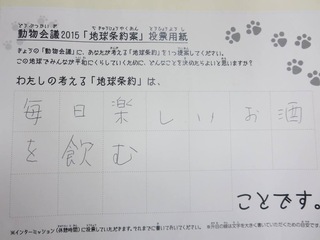 動物会議2015「地球条約案」投票用紙
きょうの「動物会議」に、あなたが考える「地球条約」を1つ提案してください。
この地球でみんなが平和にくらしていくために、どんなことを決めたらよいと思いますか?
わたしの考える「地球条約」は、
毎日楽しいお酒
を飲む
ことです。
※インターミッション(休憩時間)に投票していただきます。それまでに書いておいてください。